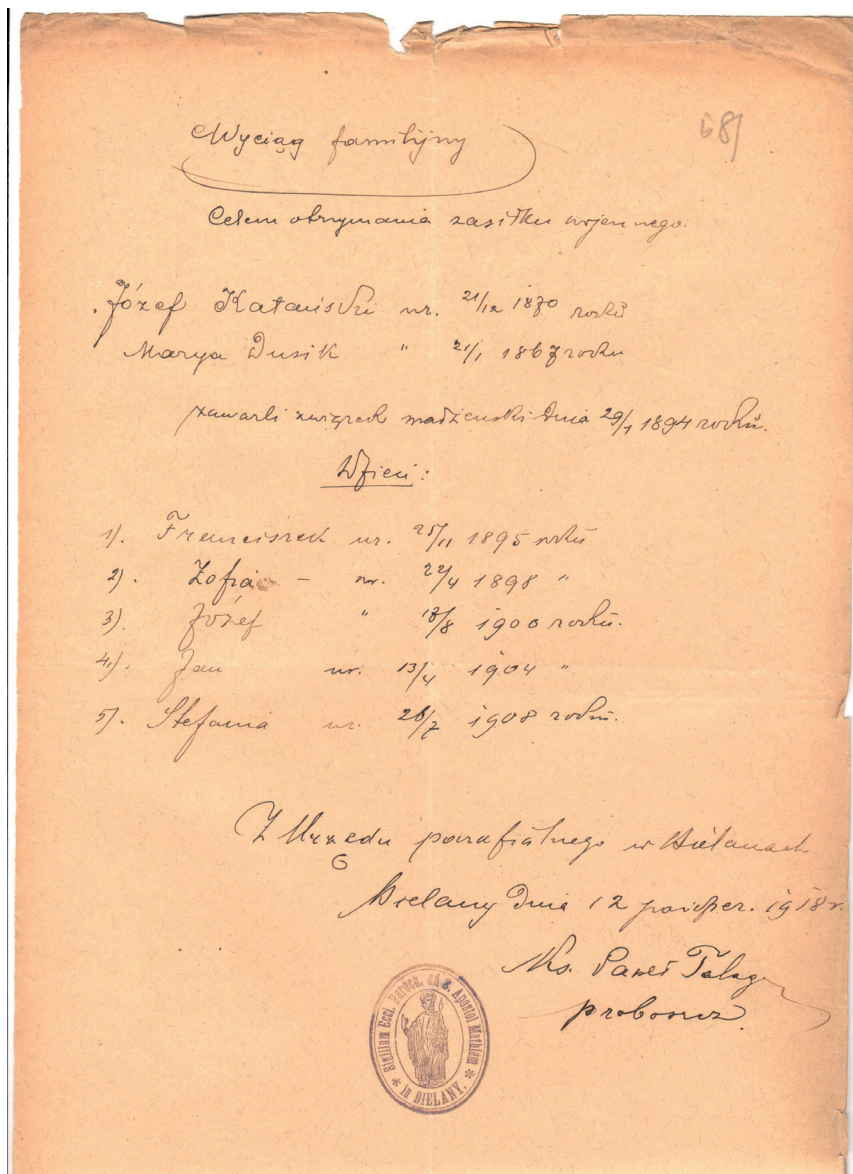 Wyciąg familijny
681
Celem otrzymania zasiłku wojennego.
Józef Katański ur. 21/12 1870 roku
Marya Dusik " 21/1 1867 roku
zawarli związek małżeński dnia 29/1 1894 roku.
Dzieci:
1). Franciszek ur. 25/11 1895 roku
2). Zofia – ur. 22/4 1898 "
3). Józef " 18/8 1900 roku.
4). Jan ur. 13/4 1904 "
5). Stefania ur. 26/7 1908 roku.
Z Urzędu parafialnego w Bielanach
Bielany dnia 12 1918 r.
Ks. Paweł
proboszcz.
Sigillum Eccl. Paroch. ad S. Apostol Mathiam
* in BIELANY. *